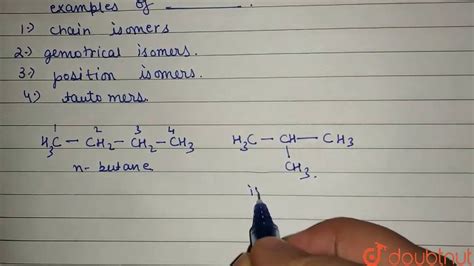 examples of ________.
1:) chain isomers
2:) gemotrical isomers.
3:) position isomers.
4:) tauto mers.
1 2 3 4
H3C - CH2 - CH2 - CH3 H3C - CH - CH3
n-butane CH3.
i
doubtnut